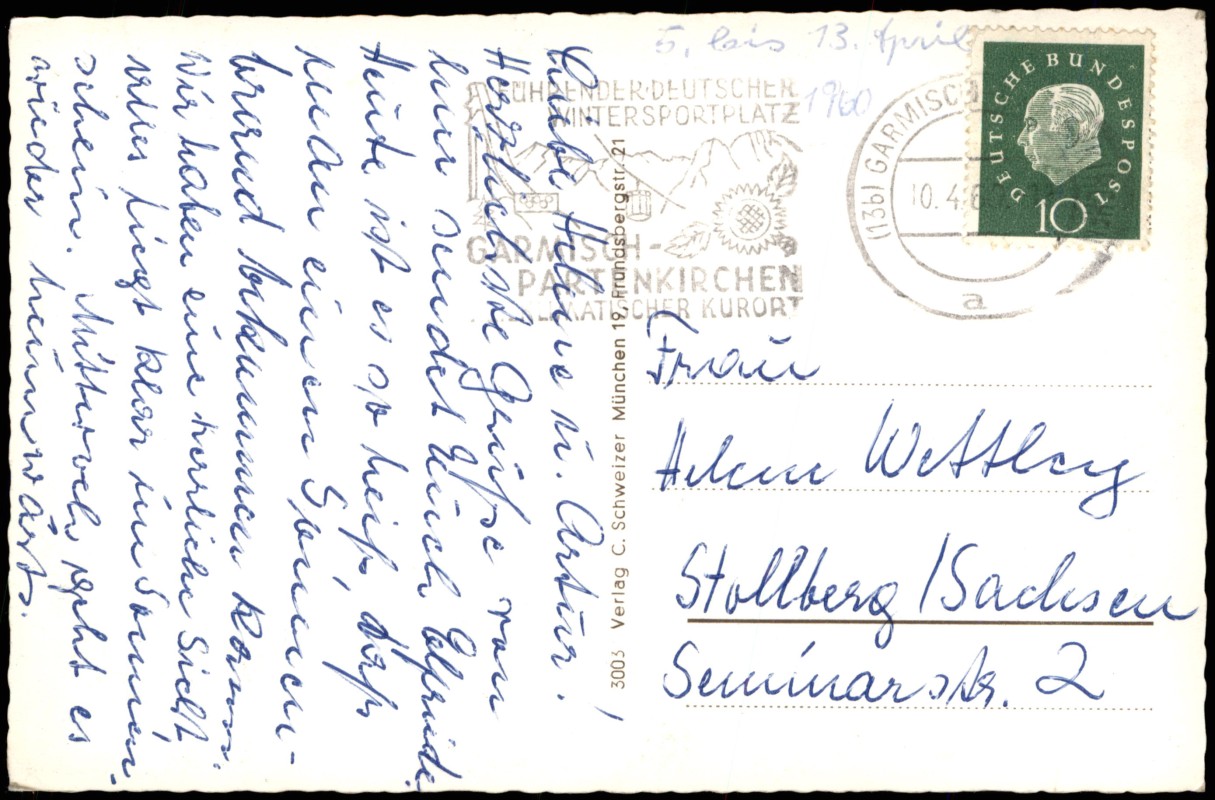 5. bis 13. April
1960
Liebe Helene u. Artur!
Herzlichste Grüße von
hier sendet Euch Elfriede.
Heute ist es so heiß, daß
man einen Sonnen-
brand bekommen kann.
Wir haben eine herrliche Sicht
alles liegt klar im Sonnen-
schein. Mittwoch geht es
wieder heimwärts.
FÜHRENDER DEUTSCHER
WINTERSPORTPLATZ
GARMISCH-
PARTENKIRCHEN
KLIMATISCHER KURORT
(13b) GARMISCH
10.4.6
a
DEUTSCHE BUNDESPOST
10
3003 Verlag C. Schweizer München 19, Frundsbergstr. 21
Frau
Helene Wettley
Stollberg/Sachsen
Seminarstr. 2